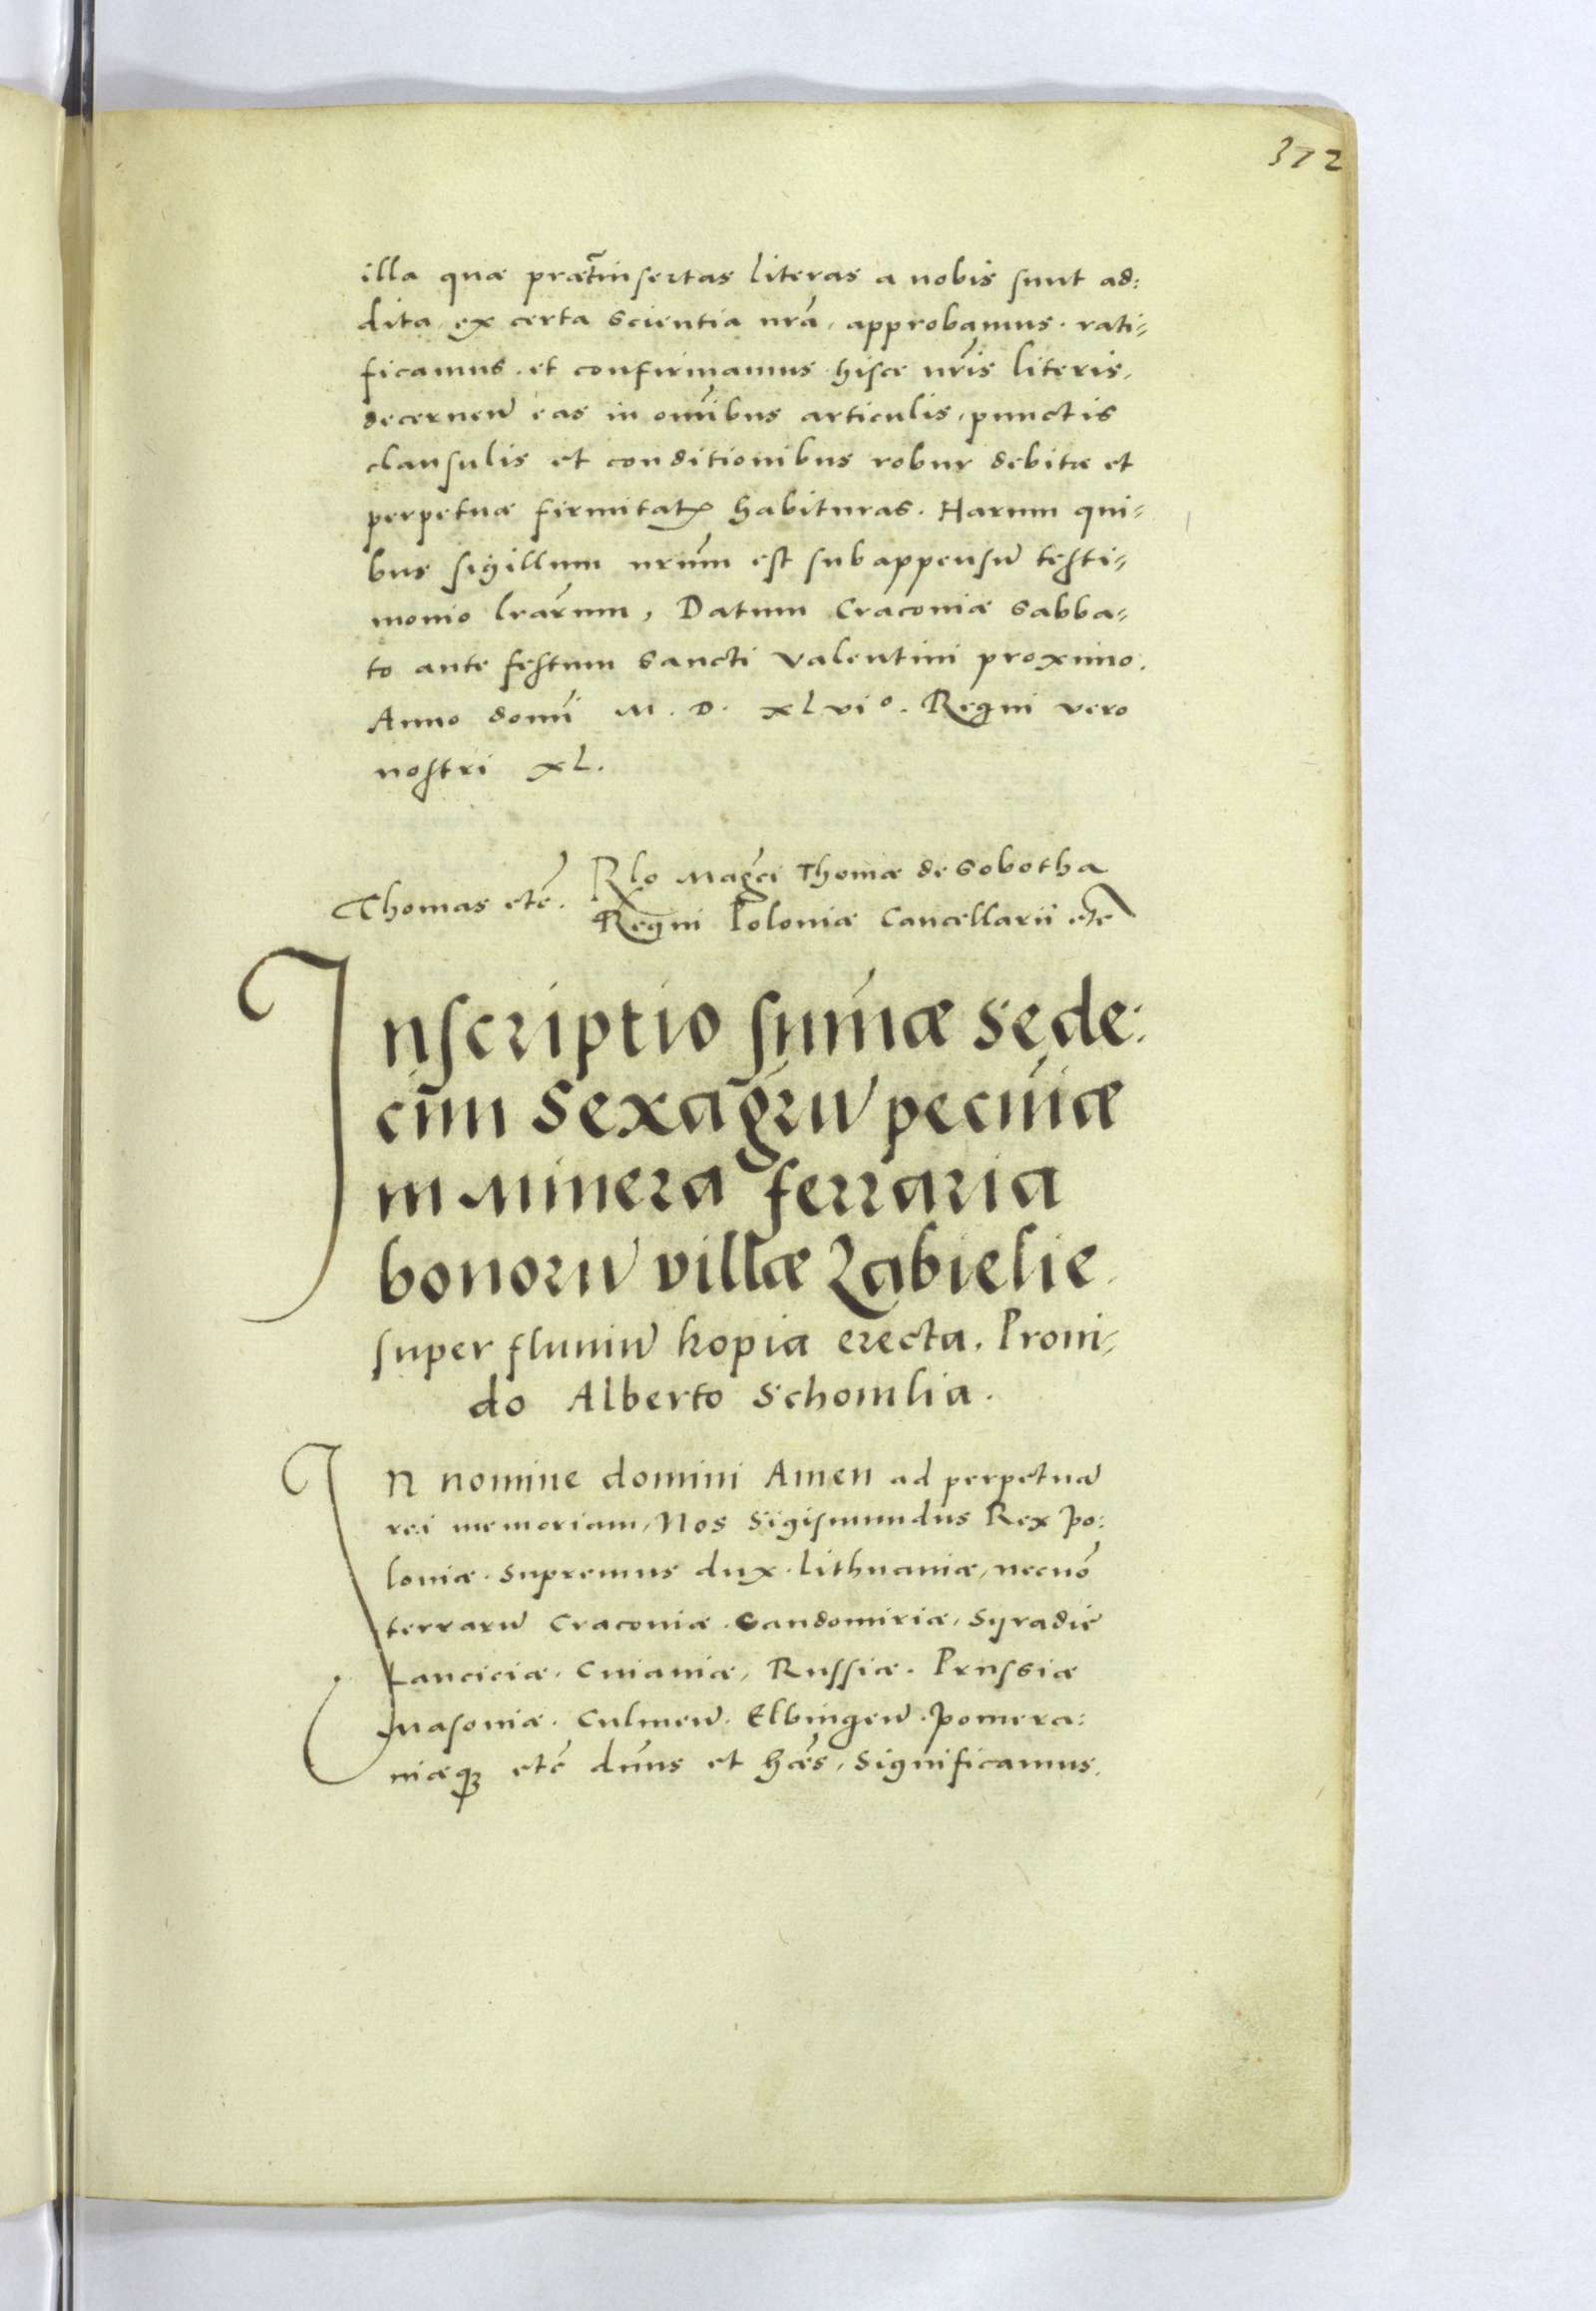 372
illa quæ præt̃insertas literas a nobis sunt ad:
dita, ex certa scientia nr̃a, approbamus. rati=
ficamus. et confirmamus hisce nr̃is literis,
decernen̄ eas in om̃ibus articulis, punctis
clausulis et conditionibus robur debitæ et
perpetuæ firmitatꝭ habituras. Harum qui=
bus sigillum nr̃um est subappensū testi=
monio lr̃arum, Datum Cracoviæ Sabba=
to ante festum Sancti Valentini proximo.
Anno domĩ M. D. XLVIº. Regni vero
nostri XL.
Rlo Mag̃ci Thomæ de Sobotha
Thomas etc̃. Regni Poloniæ Cancellarii etc̃
Inscriptio sum̃æ sede:
cim̃ sexag̃rū pecuĩæ
in Minera ferraria
bonorū villæ Zabielie
super fluviū kopia erecta. Provi=
do Alberto Schomlia.
IN nomine domini Amen ad perpetuā
rei memoriam, Nos Sigismundus Rex Po:
loniæ. Supremus dux. Lithuaniæ, necnō
terrarū Cracoviæ. Sandomiriæ, Syradiē
Lanciciæ, Cuiaviæ, Russiæ. Prussiæ
Masoviæ. Culmen̄. Elbingen̄. Pomera:
niæqꝫ etc̃ dñns et hæ̃s, Significamus.